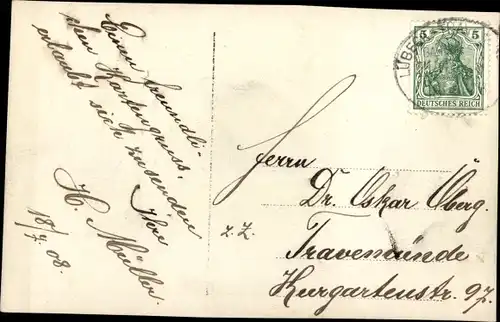 Einen freundli-
chen Kartengruss,
erlaubt sich zu senden
Ihre
H. Müller.
18/7. 08.
LÜBE
5 5
DEUTSCHES REICH
Herrn
Dr. Oskar Oberg.
z. Z.
Travemünde
Kurgartenstr. 97.